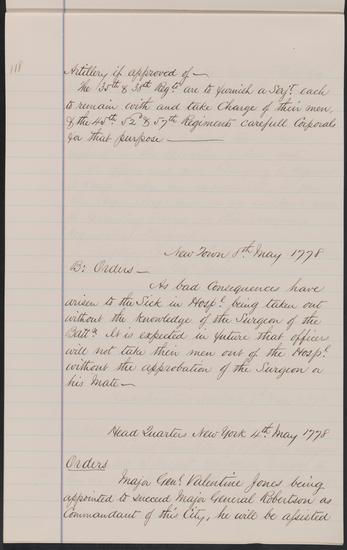 118
Artillery if approved of—
The 35th & 38th Regts. are to furnish a Serjt. each
to remain with and take Charge of their men,
& the 45th. 52d & 57th Regiments carefull Corporals
for that purpose —
New Town 8th May 1778
B: Orders—
As bad Consequences have
arisen to the Sick in Hospl. being taken out
without the knowledge of the Surgeon of the
Battn. It is expected in future that officers
will not take their men out of the Hospl.
without the approbation of the Surgeon or
his Mate—
Head Quarters New York 4th May 1778
Orders
Major Genl. Valentine Jones being
appointed to succeed Major General Robertson as
Commandant of this City, he will be assisted